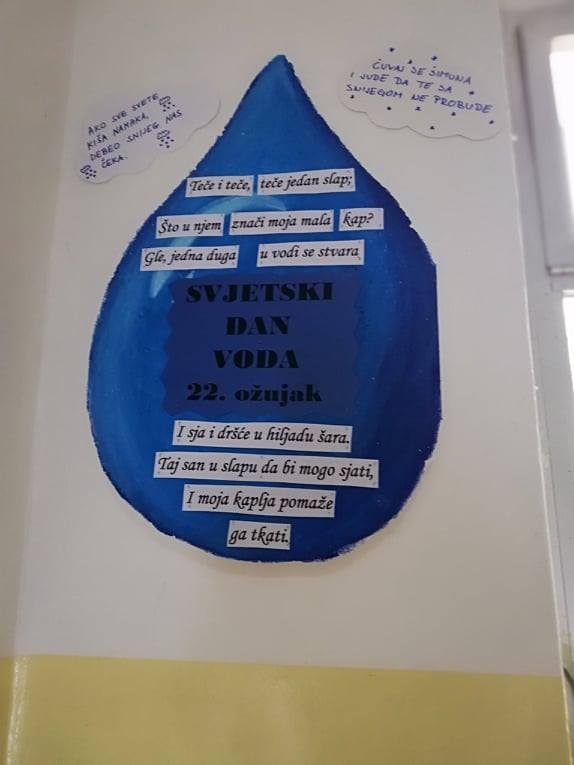 AKO SVE SVETE
KIŠA NAMAKA,
DEBEO SNIJEG NAS
ČEKA.
ČUVAJ SE ŠIMUNA
I JUDE DA TE SA
SNIJEGOM NE PROBUDE
Teče i teče, teče jedan slap;
Što u njem znači moja mala kap?
Gle, jedna duga u vodi se stvara
SVJETSKI
DAN
VODA
22. ožujak
I sja i dršće u hiljadu šara.
Taj san u slapu da bi mogo sjati,
I moja kaplja pomaže
ga tkati.